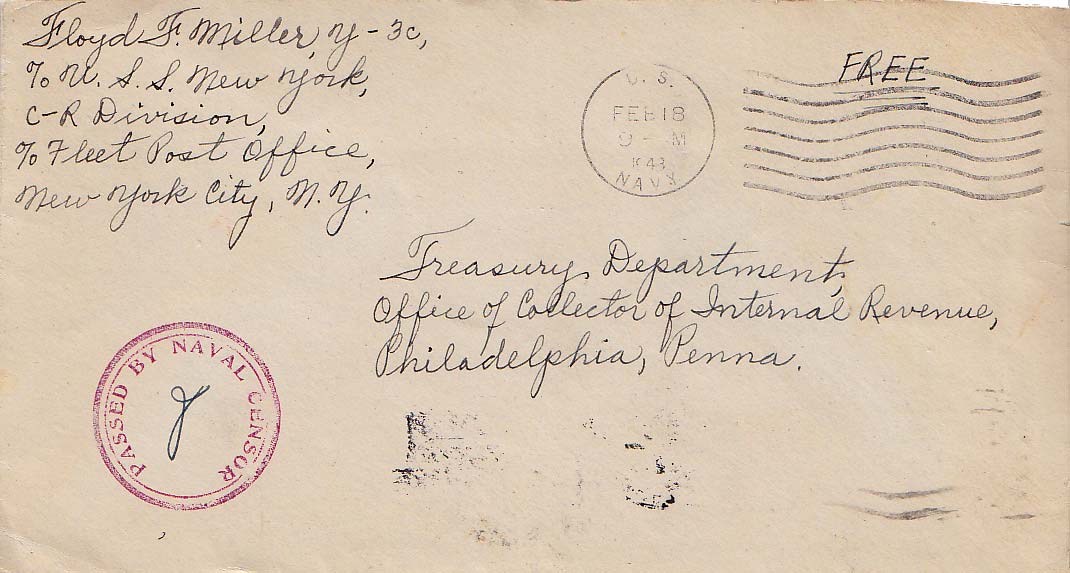 Floyd F. Miller, Y-3c,
℅ U. S. S. New York,
C-R Division,
℅ Fleet Post Office,
New York City, N.Y.
U. S.
FEB 18
9 - M
1943
NAVY
FREE
Treasury Department,
Office of Collector of Internal Revenue,
Philadelphia, Penna.
PASSED BY NAVAL CENSOR